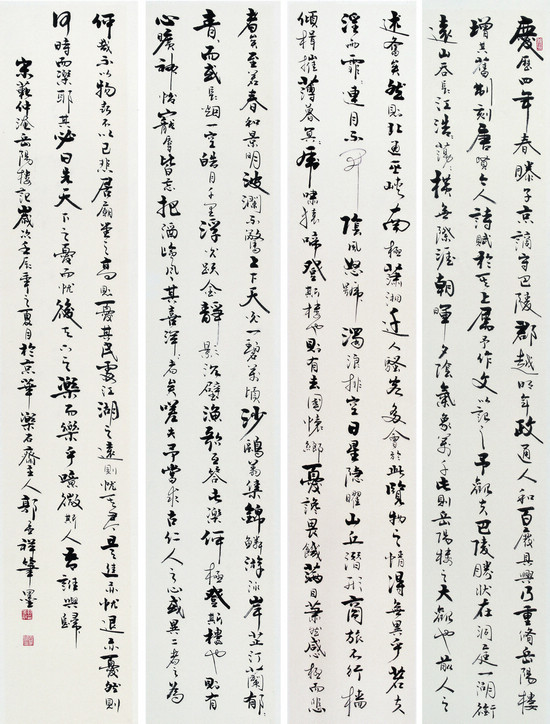 慶曆四年春滕子京謫守巴陵郡越明年政通人和百廢具興乃重修岳陽樓
增其舊制刻唐賢今人詩賦於其上屬予作文以記之予觀夫巴陵勝狀在洞庭一湖銜
遠山吞長江浩浩蕩蕩橫無際涯朝暉夕陰氣象萬千此則岳陽樓之大觀也前人之
述備矣然則北通巫峽南極瀟湘遷人騷客多會於此覽物之情得無異乎若夫
淫雨霏霏連月不開陰風怒號濁浪排空日星隱曜山丘潛形商旅不行檣
傾楫摧薄暮冥冥虎嘯猿啼登斯樓也則有去國懷鄉憂讒畏譏滿目蕭然感極而悲
者矣至若春和景明波瀾不驚上下天光一碧萬頃沙鷗翔集錦鱗游泳岸芷汀蘭郁郁
青青而或長煙一空皓月千里浮光躍金靜影沉璧漁歌互答此樂何極登斯樓也則有
心曠神怡寵辱皆忘把酒臨風其喜洋洋者矣嗟夫予嘗求古仁人之心或異二者之為
何哉不以物喜不以己悲居廟堂之高則憂其民處江湖之遠則憂其君是進亦憂退亦憂然則
何時而樂耶其必曰先天下之憂而憂後天下之樂而樂乎噫微斯人吾誰與歸
宋范仲淹岳陽樓記歲次壬辰年之夏月於京華樂石齋主人郭祥筆墨